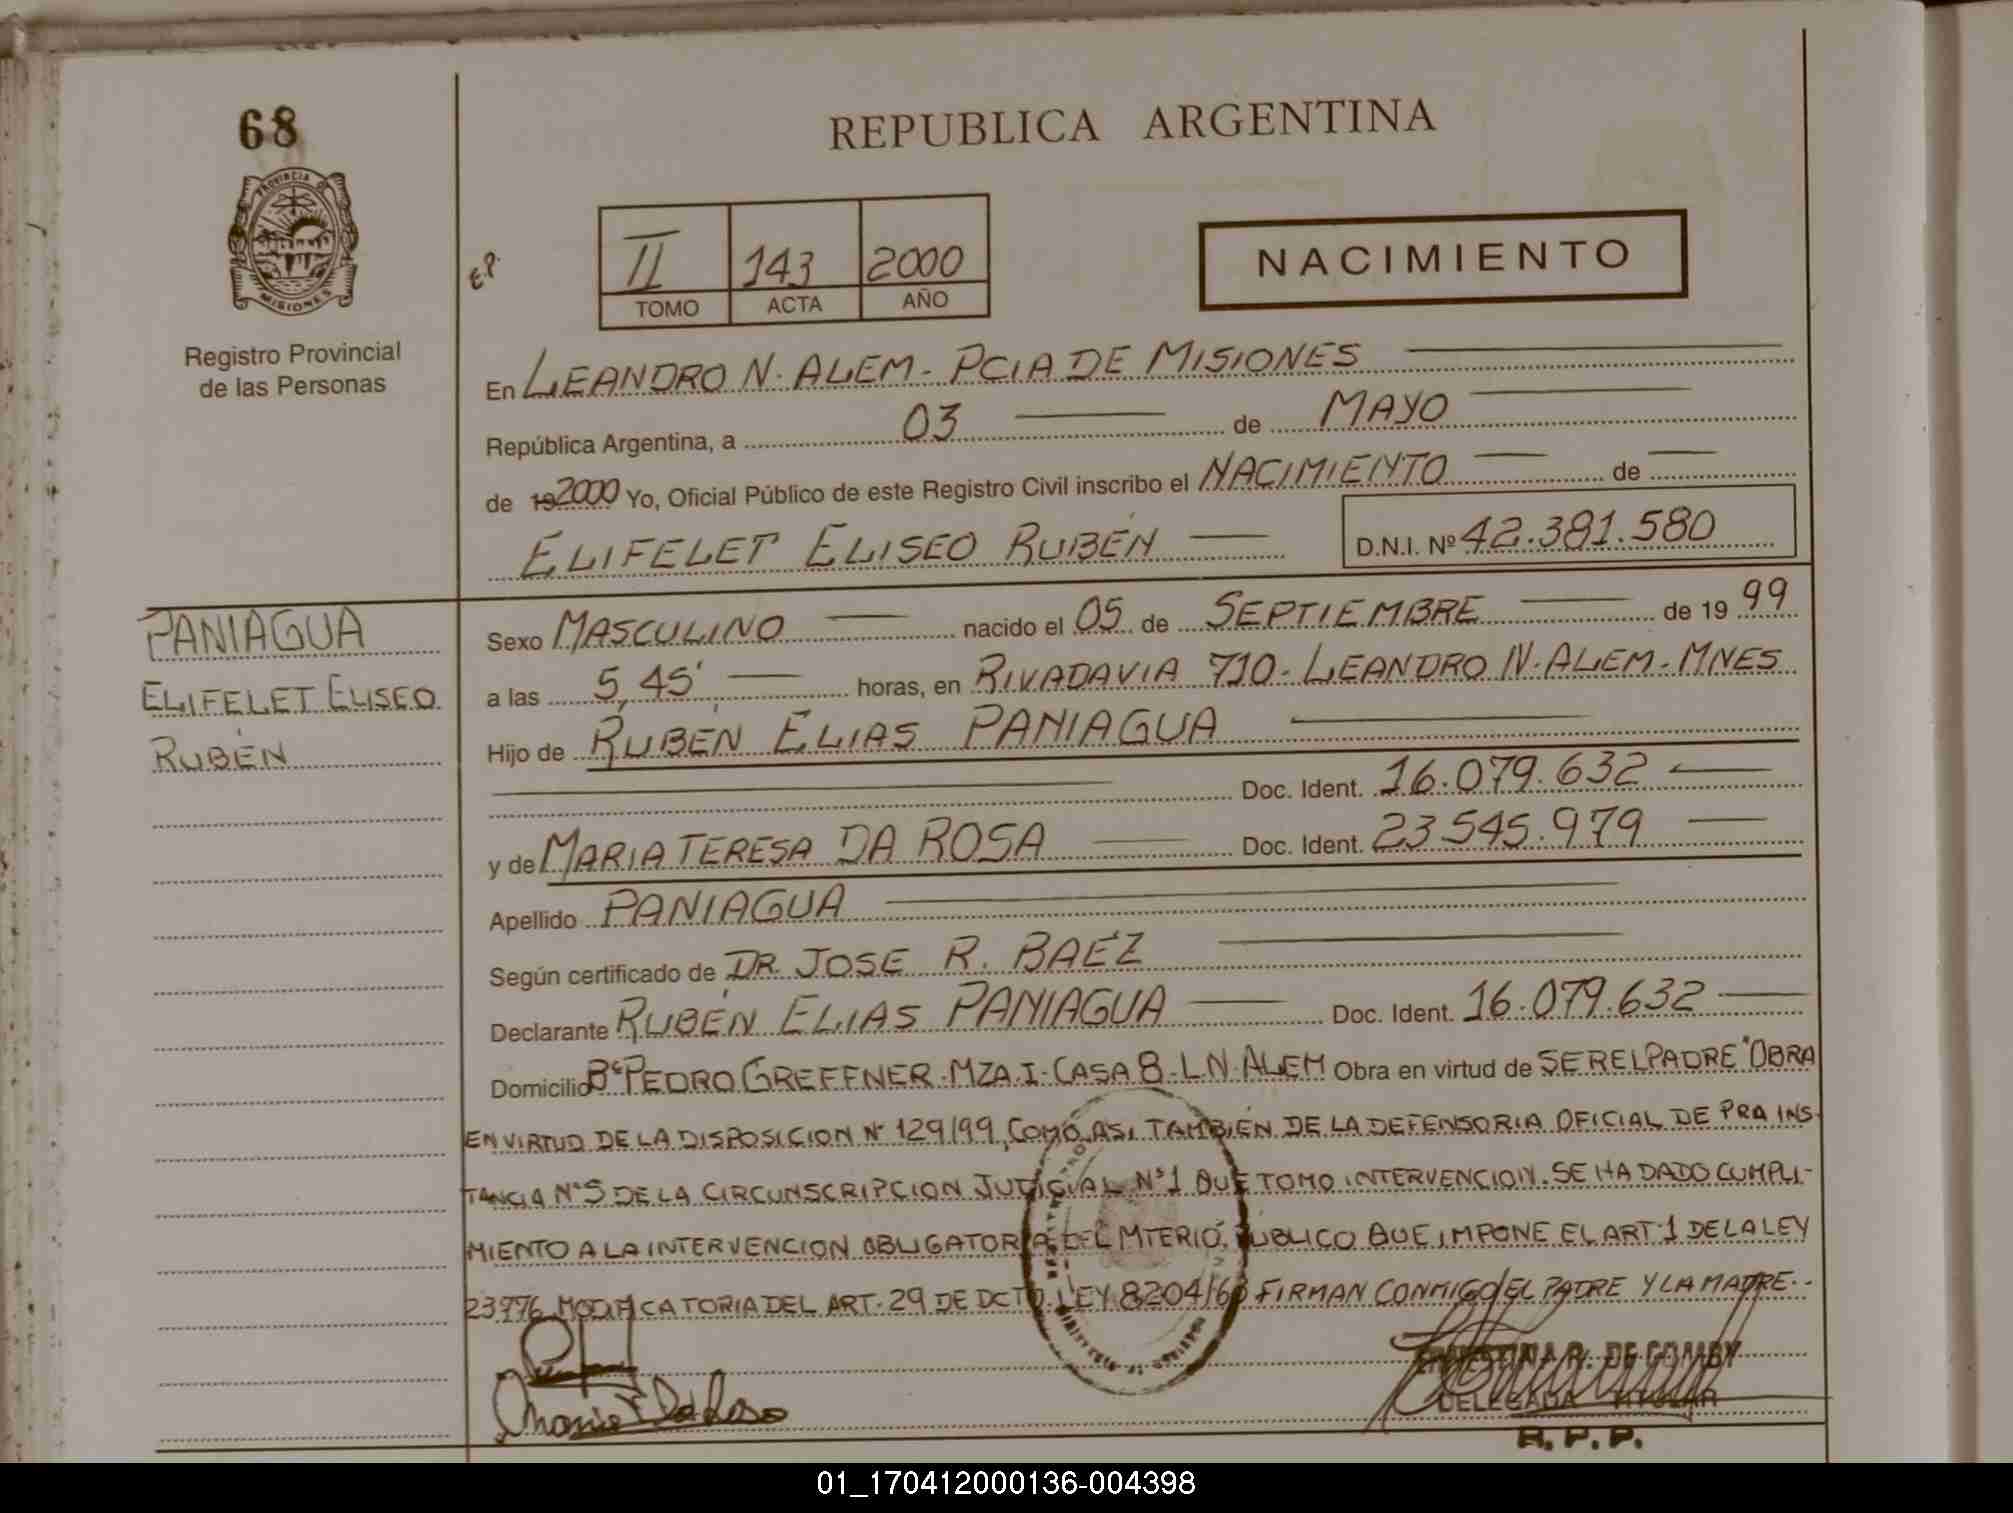 68
REPUBLICA ARGENTINA
PROVINCIA DE
MISIONES
Registro Provincial
de las Personas
E.P.
II 143 2000
TOMO ACTA AÑO
NACIMIENTO
En LEANDRO N. ALEM - PCIA DE MISIONES
República Argentina, a 03 de MAYO
de 19 2000 Yo, Oficial Público de este Registro Civil inscribo el NACIMIENTO de
ELIFELET ELISEO RUBÉN D.N.I. Nº 42.381.580
PANIAGUA
ELIFELET ELISEO
RUBÉN
Sexo MASCULINO nacido el 05 de SEPTIEMBRE de 19 99
a las 5,45' horas, en RIVADAVIA 710 - LEANDRO N. ALEM - MNES
Hijo de RUBÉN ELIAS PANIAGUA
Doc. Ident. 16.079.632
y de MARIA TERESA DA ROSA Doc. Ident. 23545.979
Apellido PANIAGUA
Según certificado de DR. JOSE R. BAEZ
Declarante RUBÉN ELIAS PANIAGUA Doc. Ident. 16.079.632
Domicilio Bº PEDRO GREFFNER - MZA. I - CASA 8 - L.N. ALEM Obra en virtud de SER EL PADRE "OBRA
EN VIRTUD DE LA DISPOSICION Nº 129/99, COMO ASI TAMBIÉN DE LA DEFENSORIA OFICIAL DE PRA INS-
TANCIA Nº 5 DE LA CIRCUNSCRIPCION JUDICIAL Nº 1 QUE TOMO INTERVENCION. SE HA DADO CUMPLI-
MIENTO A LA INTERVENCION OBLIGATORIA DEL MTERIO. PUBLICO QUE IMPONE EL ART. 1 DE LA LEY
23776 MODIFICATORIA DEL ART. 29 DE DCTO. LEY 8204/63 FIRMAN CONMIGO EL PADRE Y LA MADRE.-
Maria T Da Rosa
DE GOMBY
DELEGADA TITULAR
R.P.P.
01_170412000136-004398